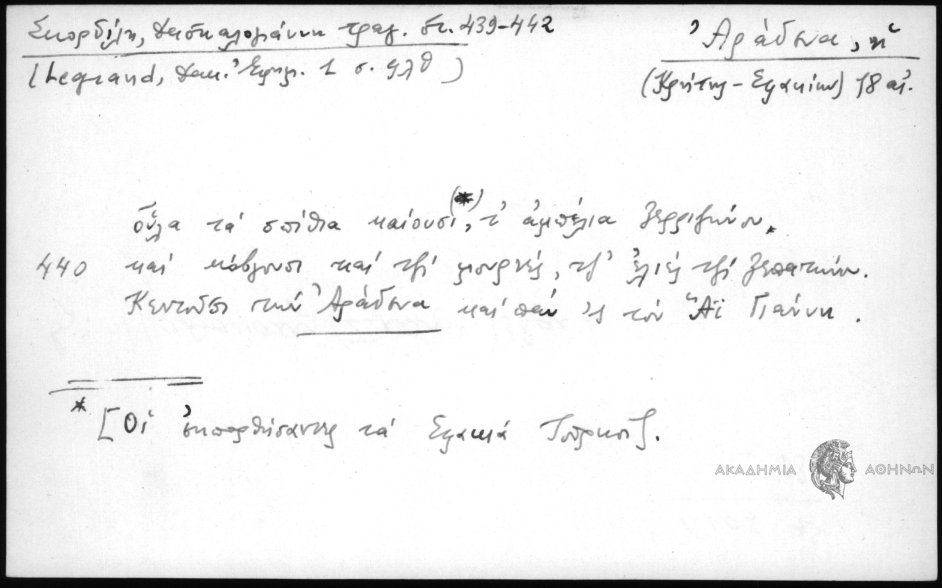 Σκορδίλη, Δασκαλογιάννη τραγ. στ. 439-442
(Legrand, Δακ. Ἐφημ. 1 σ. ϡλθ)
Ἀράδενα, ἡ
(Κρήτης - Σφακίων) 18 αἰ.
οὗλα τά σπίθια καίουσι(*), τ' ἀμπέλια ξερριζώνου.
440 καί κόβγουσι καί τζί μουρνιές, τζ' ἐλιές τζί ξεπατώνου.
Κεντοῦσι τήν Ἀράδενα καί πᾶν 'ς τόν Ἅϊ Γιάννη.
* [Οἱ ἐκπορθήσαντες τά Σφακιά Τοῦρκοι].
ΑΚΑΔΗΜΙΑ ΑΘΗΝΩΝ